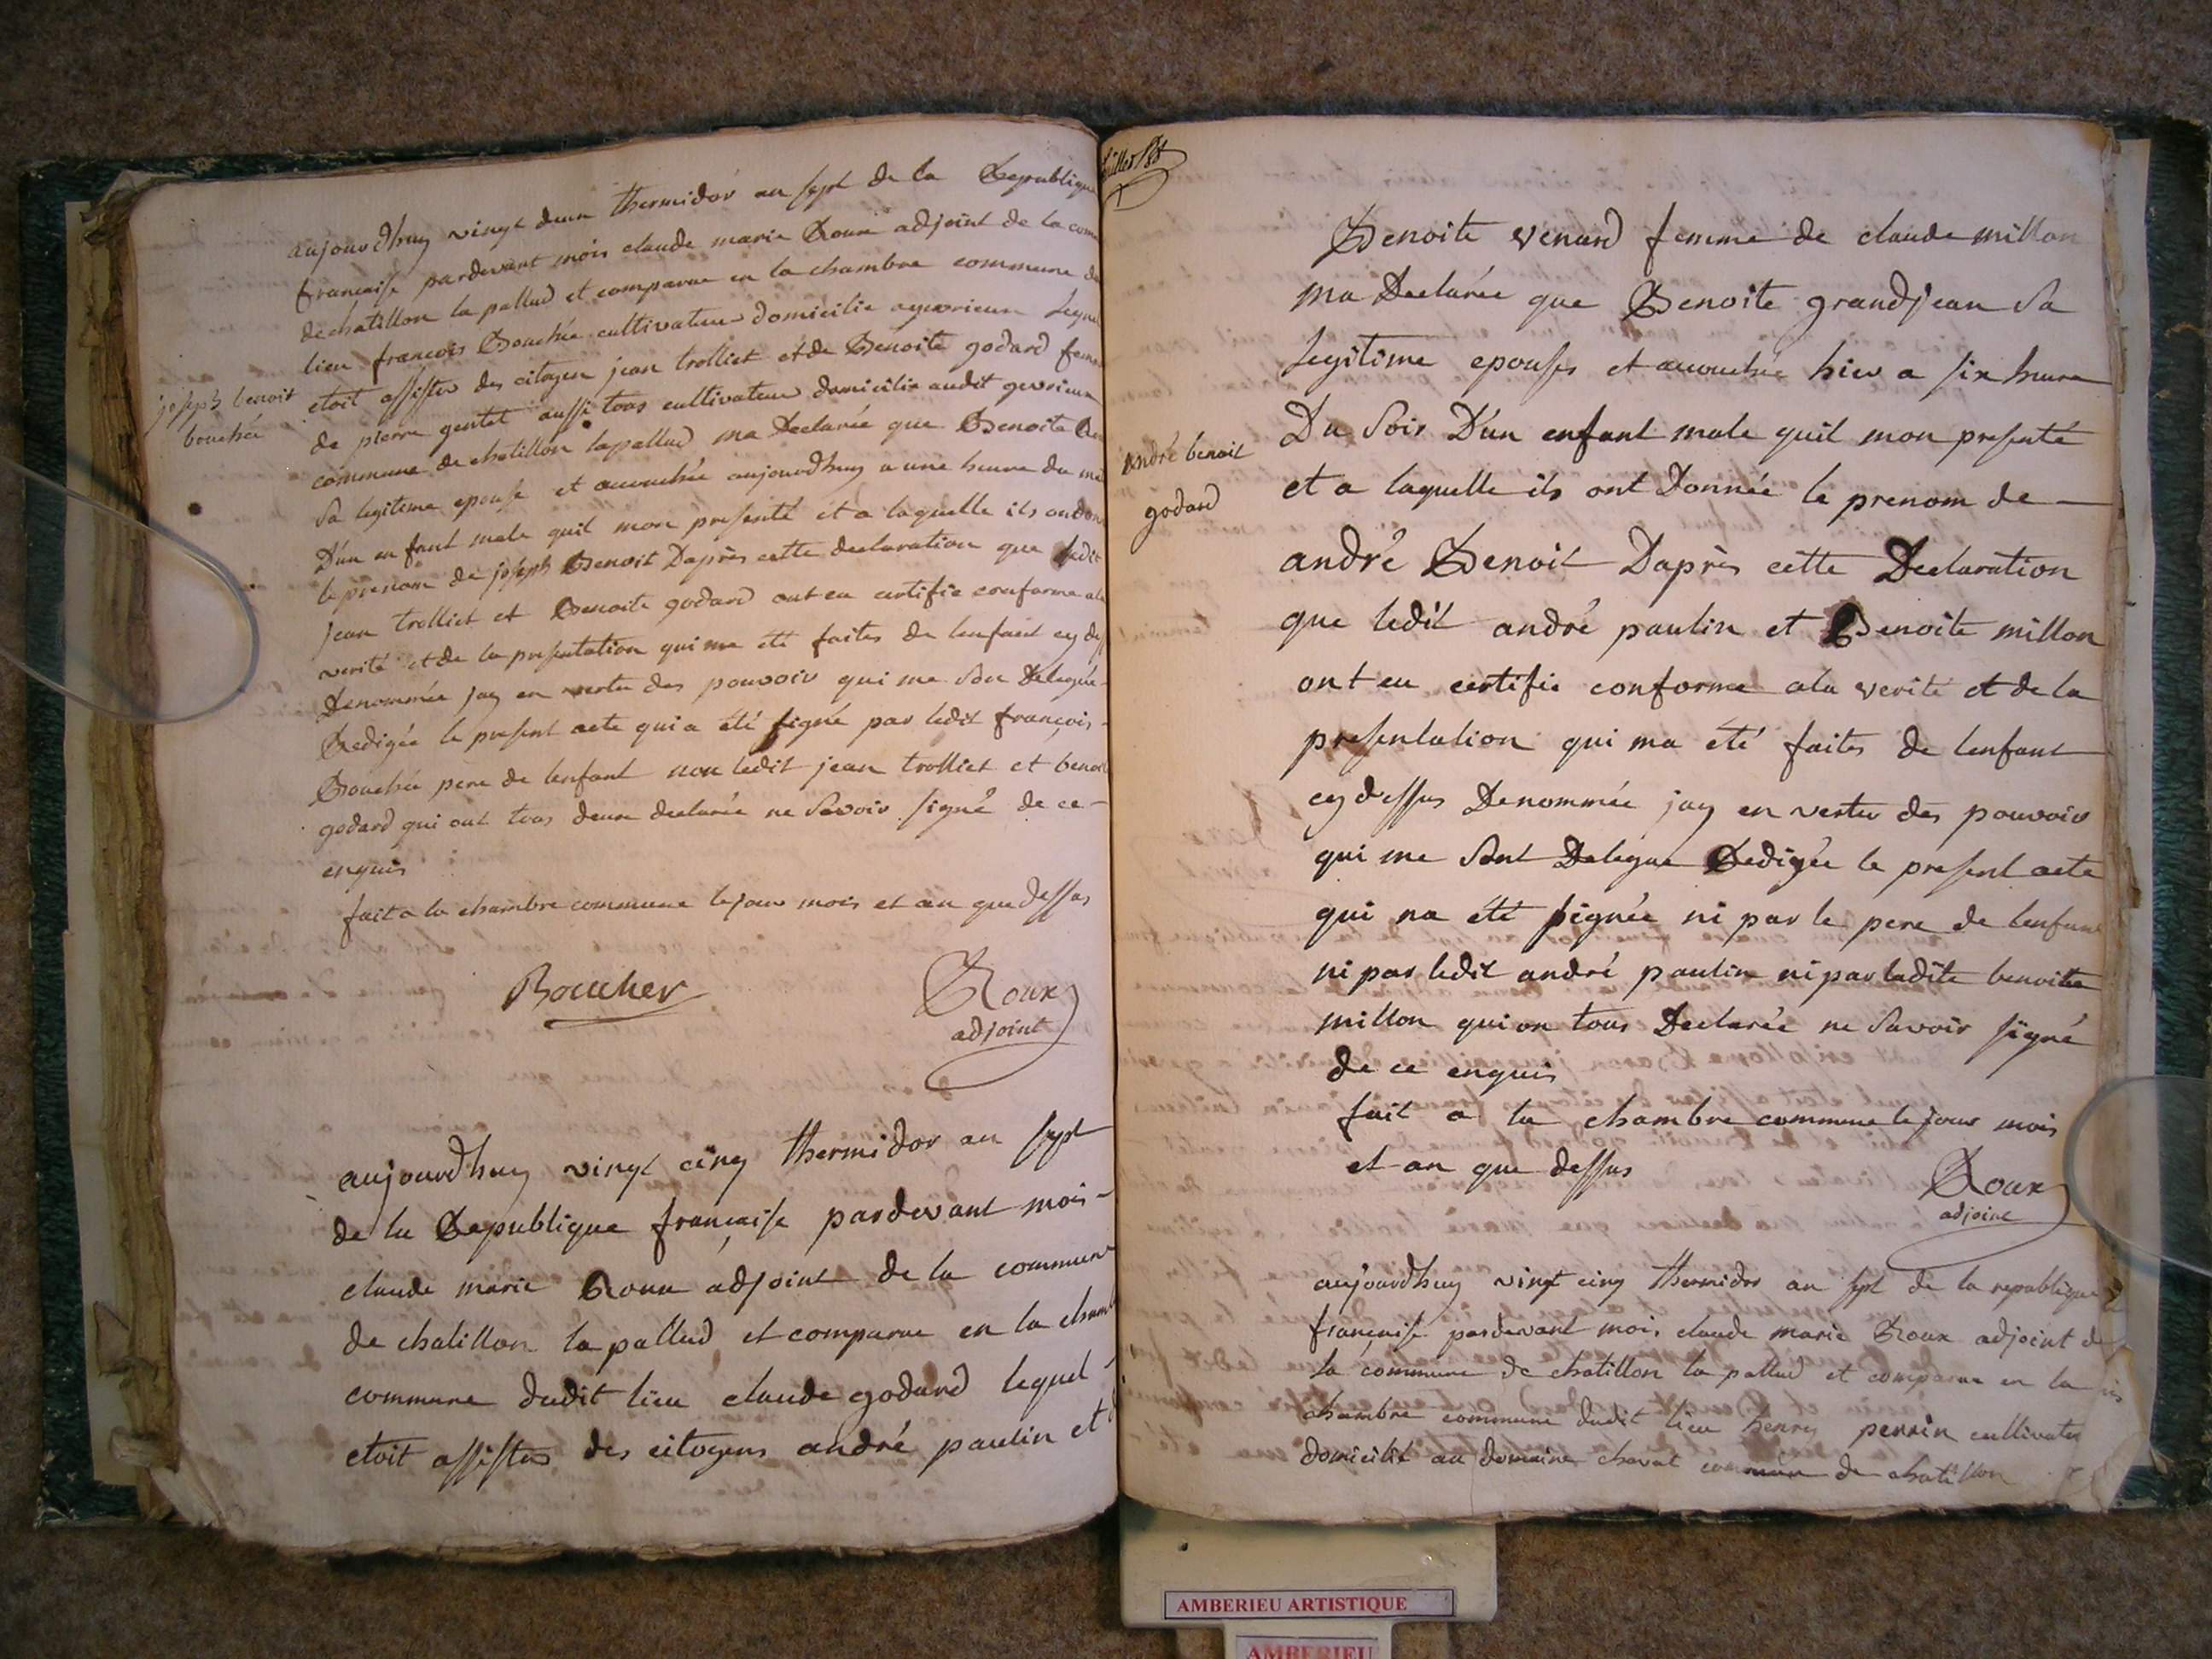 aujourdhuy vingt deux thermidor an sept de la Republique
francaise pardevant mois claude marie Roux adjoint de la com
de chatillon la pallud et comparue en la chambre commune du
lieu francois Bouchée cultivateur domicilie agevrieux lequel
etoit assister des citoyen jean trolliet et de Benoite godard fem
joseph benoit
bouchée
de pierre gentet aussi tous cultivateur domicilie audit gevrieux
commune de chatillon lapallud ma Declarée que Benoite
sa legitime epouse et accouchée aujourdhuy a une heure du
D'un enfant male quil mon presenté et a laquelle ils ondon
le prenom de joseph Benoit Daprès cette declaration que ledit
jean trolliet et Benoite godard ont eu certifie conforme ala
verité et de la presentation qui ma eté faites de lenfant cy de
Denommée jay en vertu des pouvoir qui me son Deleguée
Redigée le present acte qui a été signé par ledit francois -
Bouchée pere de lenfant non ledit jean trolliet et benoit
godard qui ont tous deux declarée ne savoir signé de ce -
enquis
fait a la chambre commune le jour mois et an que dessus
Boucher
Roux
adjoint
aujourdhuy vingt cinq thermidor an sept
de la Republique française pardevant mois -
claude marie Roux adjoint de la commune
de chatillon la pallud et comparue en la chamb
commune dudit lieu claude godard lequel
etoit assister des citoyens andré paulin et
Benoite venard femme de claude millon
ma Declarée que Benoite grandjean sa
legitime epouses et accouchée hier a six heure
Du soir D'un enfant male quil mon presenté
andré benoit
godard
et a laquelle ils ont Donnée le prenom de -
andré Benoit Daprès cette Declaration
que ledit andré paulin et Benoite millon
ont eu certifie conforme ala verité et de la
presentation qui ma été faites de lenfant
cy dessus Denommée jay en vertu des pouvoir
qui me sont Delegue Redigée le present acte
qui na été signée ni par le pere de lenfant
ni par ledit andré paulin ni par ladite benoitte
millon qui on tous Declarée ne savoir signé
de ce enquis
fait a la chambre commune le jour mois
et an que dessus
Roux
adjoint
aujourdhuy vingt cinq thermidor an sept de la republique
française pardevant mois claude marie Roux adjoint de
la commune de chatillon la pallud et comparue en la
chambre commune dudit lieu henry perrin cultivateur
domicilié au domaine chavat commune de chatillon
AMBERIEU ARTISTIQUE
AMBERIEU